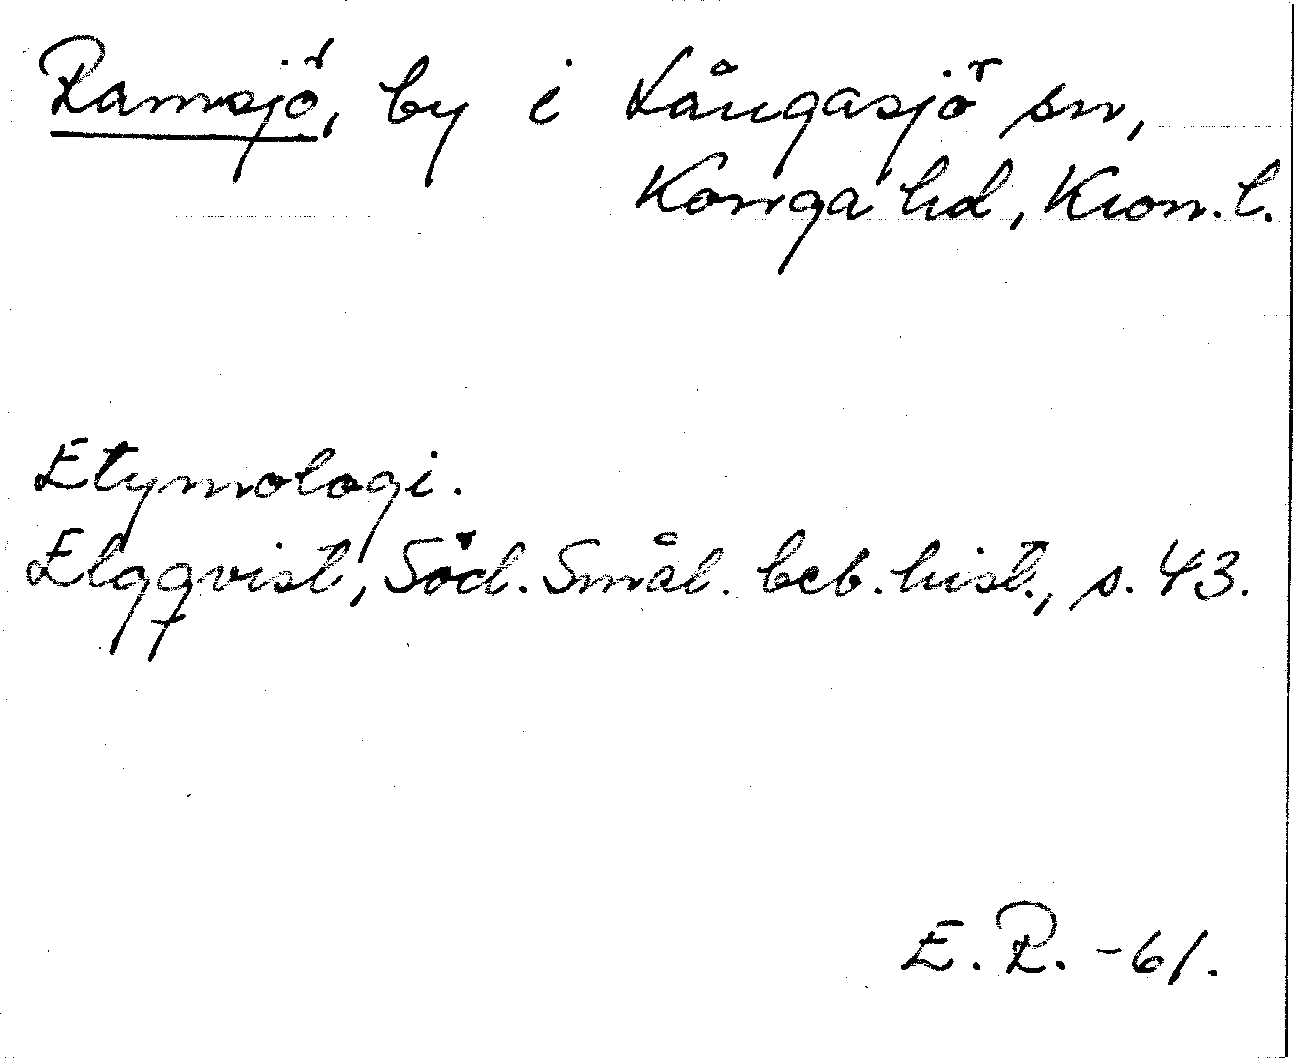 Ramsjö, by i Långasjö sn,
Konga hd, Kron. l.
Etymologi.
Elgqvist, Söd. Smål. beb. hist., s. 43.
E. R. -61.